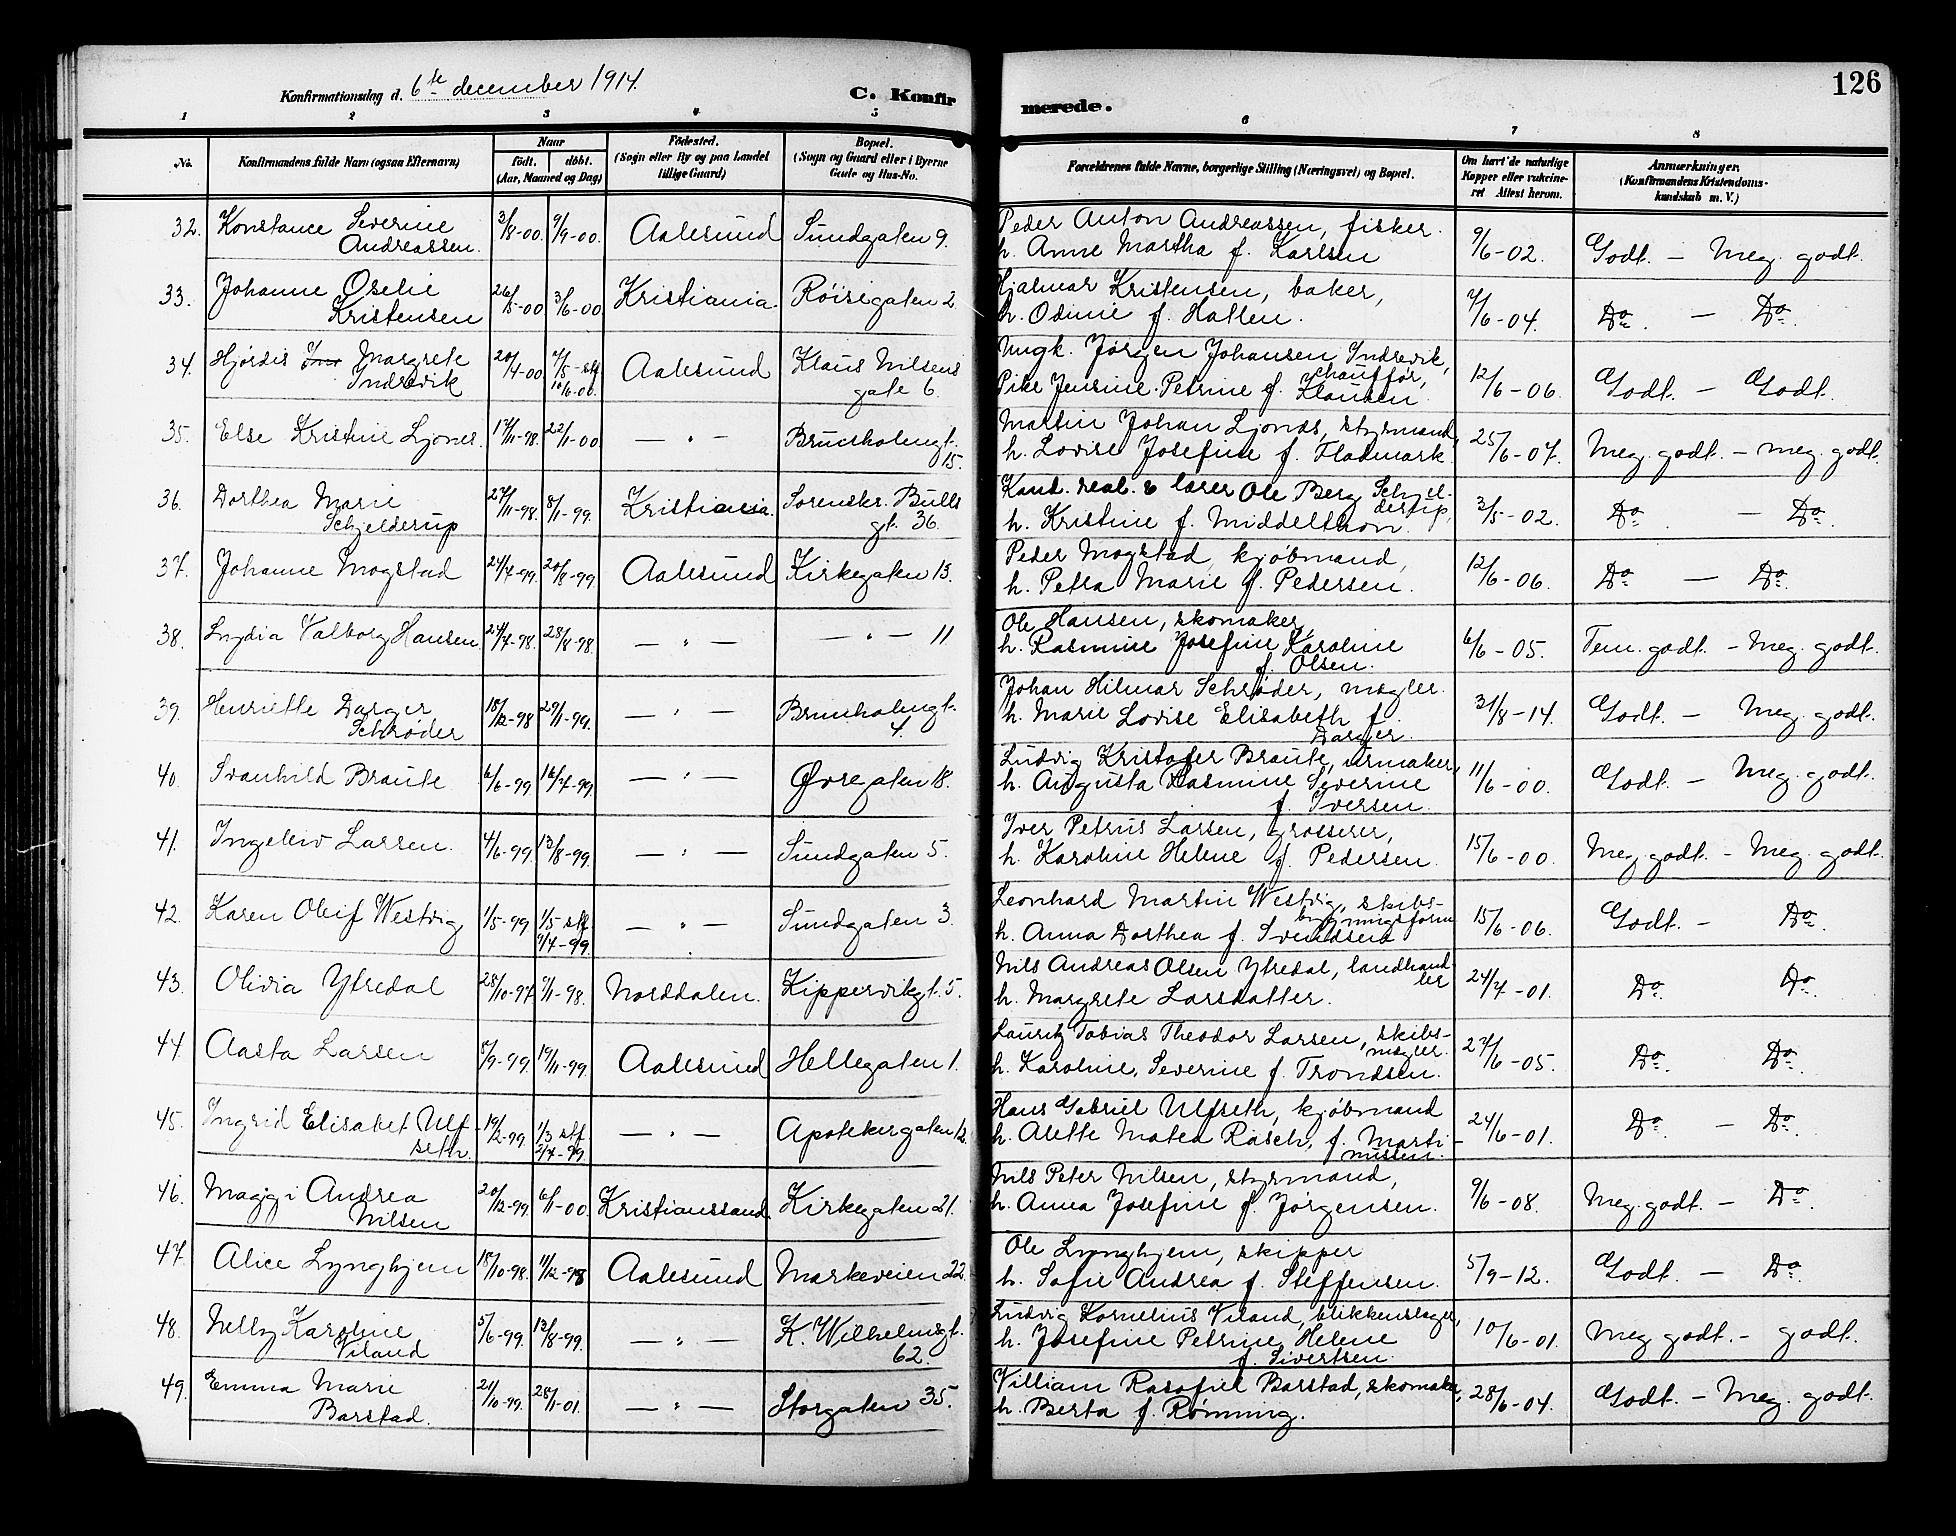 126
Konfirmationsdag d. 6te december 1914.
C. Konfirmerede.
1 2 3 4 5 6 7 8
No. Konfirmandens fulde Navn (ogsaa Efternavn) Naar født. døbt. (Aar, Maaned og Dag) Fødested. (Sogn eller By og paa Landet tillige Gaard) Bopæl. (Sogn og Gaard eller i Byerne Gade og Hus-No. Forældrenes fulde Navne, borgerlige Stilling (Næringsvei) og Bopæl. Om havt de naturlige Kopper eller vakcineret Attest herom. Anmærkninger. (Konfirmandens Kristendomskundskab m. V.)
32. Konstance Severine Andreassen. 3/8-00. 9/9-00. Aalesund Sundgaten 9. Peder Anton Andreassen, fisker. h. Anne Martha f. Karlsen 9/6-02. Godt. – Meg. godt.
33. Johanne Oselie Kristensen 26/5-00 3/6-00. Kristiania. Røisegaten 2. Hjalmar Kristensen, baker, h. Odine f. Hatlen. 7/6-04. Do. – Do.
34. Hjørdis Margrete Indrevik 20/4-00 Aalesund Klaus Nilsens gate 6. Ungk. Jørgen Johansen Indrevik, chauffør, Pike Jensine Petrine f. Klausen. 12/6-06. Godt. – Godt.
35. Else Kristine Ljones. 17/11-98. 22/11-00. — " — Brunholmgt. 15. Martin Johan Ljones, styrmand, h. Lovise Josefine f. Fladmark. 25/6-07. Meg. godt. – meg. godt.
36. Dorthea Marie Schjelderup 27/11-98. 8/11-99. Kristiania Sorenskr. Bulls gt. 36. Kand. real. & lærer Ole Berg Schjelderup, h. Kristine f. Middelthon. 3/5-02. Do. – Do.
37. Johanne Mogstad 24/7-99. 20/8-99 Aalesund Kirkegaten 13. Peder Mogstad, kjøbmand, h. Petra Marie f. Pedersen. 12/6-06. Do – Do.
38. Lydia Valborg Hansen. 24/7-98. 28/8-98. — " — — " — 11 Ole Hansen, skomaker, h. Rasmine Josefine Karoline f. Olsen. 6/6-05. Tem. godt. – Meg. godt.
39. Henriette Darger Schrøder 18/12-98 29/1-99. — " — Brunholmgt. 4. Johan Hilmar Schrøder, mægler. h. Marie Lovise Elisabeth f. Darger. 31/8-14. Godt. – Meg. godt.
40. Svanhild Braute 6/6-99 16/7-99 — " — Øvregaten 18. Ludvig Kristofer Braute, urmaker, h. Augusta Rasmine Severine f. Iversen. 11/6-00. Godt. – Meg. godt.
41. Ingeleiv Larsen. 4/6-99. 13/8-99. — " — Sundgaten 5. Iver Petrus Larsen, grosserer, h. Karoline Helene f. Pedersen. 15/6-00. Meg. godt. – Meg. godt.
42. Karen Oleif Westvig 1/5-99 1/5 stf 9/7-99 — " — Sundgaten 3. Leonhard Martin Westvig, skibsbygningsform. h. Anna Dorthea f. Svendsen 15/6-06. Godt. – Do.
43. Olivia Ytredal 28/10-97 9/1-98. Norddalen. Kippervikgt. 5. Nils Andreas Olsen Ytredal, landhandler h. Margrete Larsdatter. 24/7-01. Do. Do.
44. Aasta Larsen 5/9-99. 19/11-99. Aalesund Hellegaten 1. Lauritz Tobias Theodor Larsen, skibsmægler. h. Karoline Severine f. Trondsen. 27/6-05. Do. Do.
45. Ingrid Elisabet Ulfseth. 19/2-99. 1/3 stf. 2/7-99. — " — Apotekergaten 12. Hans Gabriel Ulfseth, kjøbmand h. Alette Matea Rasch, f. Martinussen. 24/6-01. Do. – Do.
46. Maggi Andrea Nilsen 20/12-99. 6/1-00. Kristianssand. Kirkegaten 21. Nils Peter Nilsen, styrmand, h. Anna Josefine f. Jørgensen. 9/6-08. Meg. godt. – Do.
47. Alice Lynghjem 18/10-98. 11/12-98 Aalesund Markeveien 22. Ole Lynghjem, skipper h. Sofie Andrea f. Steffensen. 5/9-12. Godt. – Do.
48. Nelly Karoline Viland 5/6-99. 13/8-99. — " — K. Wilhelmsgt. 62. Ludvig Kornelius Viland, blikkenslager, h. Josefine Petrine Helene f. Sivertsen. 10/6-01. Meg godt. – godt.
49. Emma Marie Barstad. 21/10-99. 28/1-01. — " — Storgaten 35. William Rasafiel Barstad, skomaker, h. Berta f. Rønning. 28/6-04. Godt. – Meg. godt.